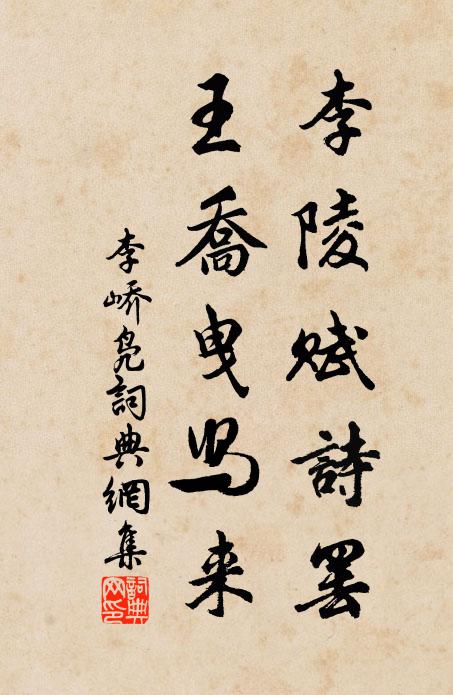 李陵赋詩罢
王喬曳舄来
李嶠凫詞典網集
詞典网印